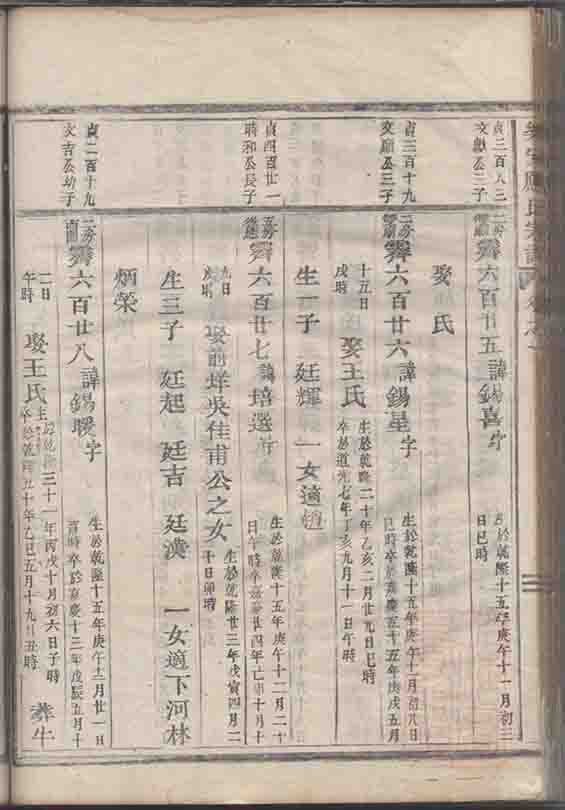 貞三百八三
文獻公三子
霽六百廿五 諱錫喜字
生於乾隆十五年庚午十一月初三
日巳時
娶 氏
貞三百十九
文顯公三子
霽六百廿六 諱錫星字
生於乾隆十五年庚午十一月初八日
巳時卒於嘉慶五十五年庚戌五月
十五日
戌時
娶王氏
生於乾隆二十年乙亥二月廿九日巳時
卒於道光七年丁亥九月十一日午時
生一子 廷輝 一女適趙
貞四百廿一
時和公長子
霽六百廿七 諱培選行
生於乾隆十五年庚午十二月二十
日午時卒嘉慶廿四年亡卯十月十
九日
時
娶前垟吳佳甫公之女
生於乾隆廿三年戊寅四月二
十日卯時
生三子 廷起 廷吉 廷漢 一女適下河林
炳榮
貞二百十九
文吉公幼子
霽六百廿八 諱錫暖字
生於乾隆十五年庚午十二月廿一日
酉時卒於嘉慶十三年戊辰五月十
一日
午時
娶王氏
生於乾隆三十一年丙戌十月初六日子時
卒於乾隆五十年乙巳五月十九日丑時
葬牛